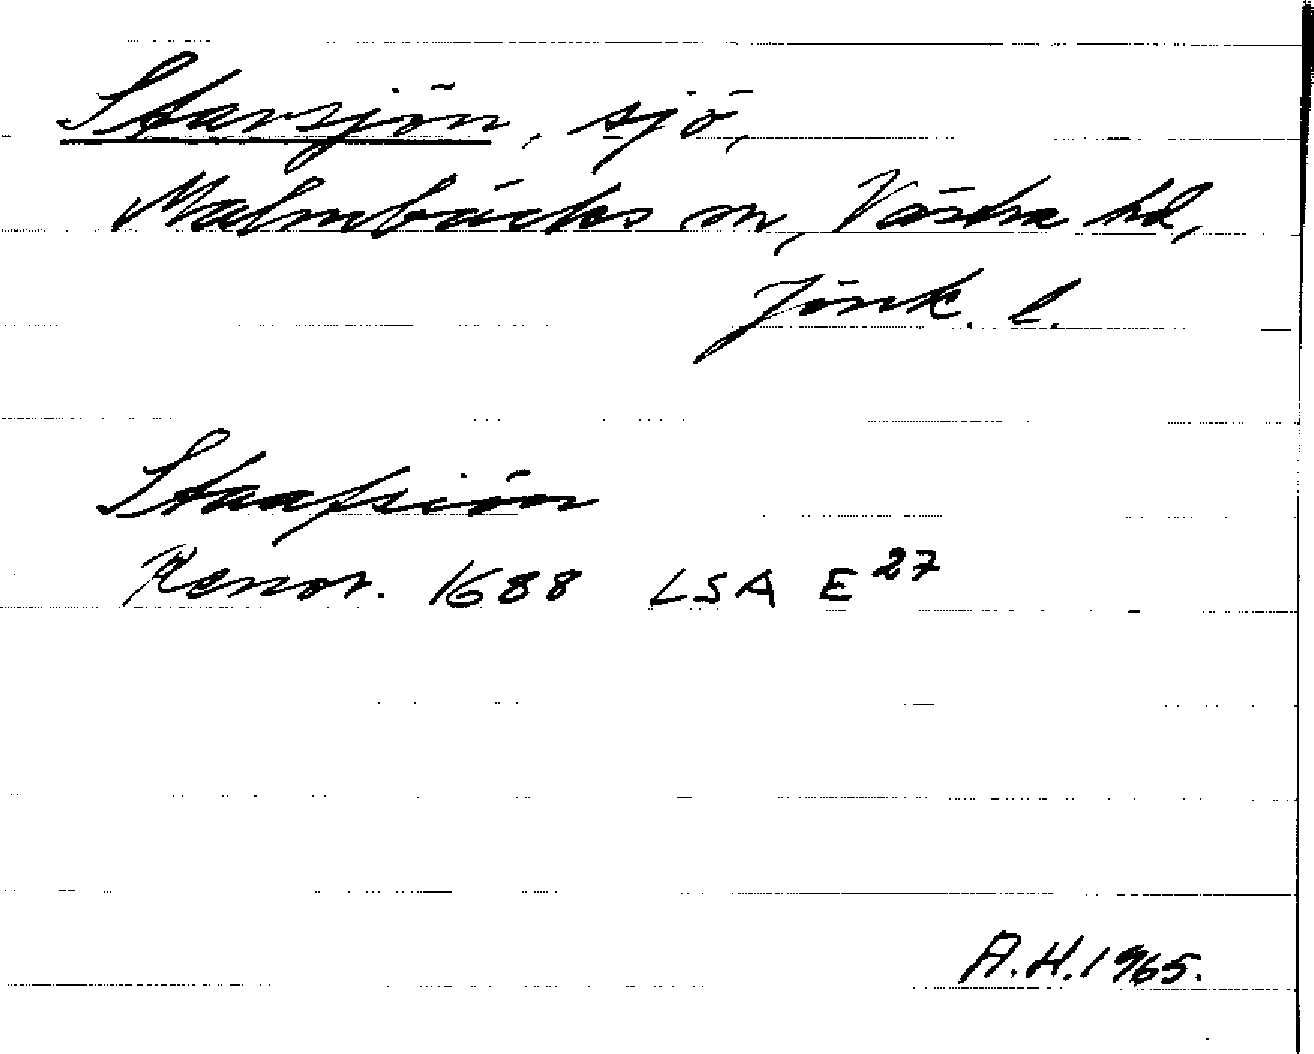 Starsjön, sjö,
Malmbäcks sn, Västra hd,
Jönk. l.
Staafsiön
Renov. 1688 LSA E 27
A.H. 1965.